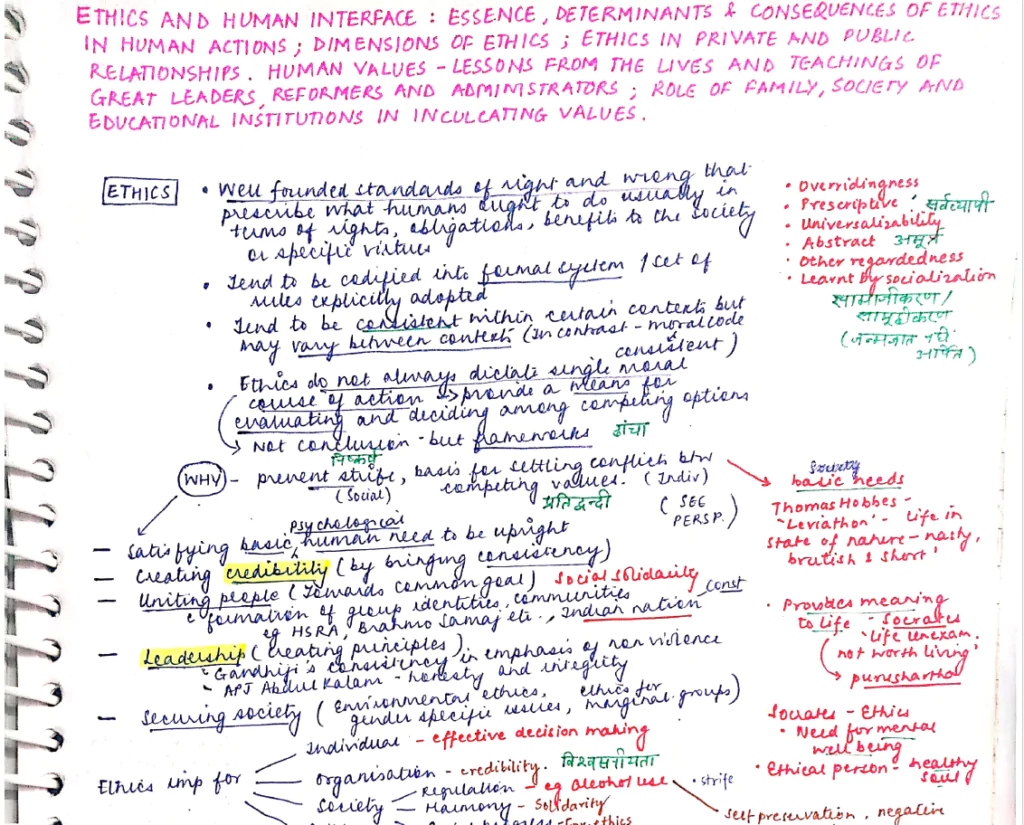 ETHICS AND HUMAN INTERFACE : ESSENCE, DETERMINANTS & CONSEQUENCES OF ETHICS
IN HUMAN ACTIONS ; DIMENSIONS OF ETHICS ; ETHICS IN PRIVATE AND PUBLIC
RELATIONSHIPS. HUMAN VALUES - LESSONS FROM THE LIVES AND TEACHINGS OF
GREAT LEADERS, REFORMERS AND ADMINISTRATORS ; ROLE OF FAMILY, SOCIETY AND
EDUCATIONAL INSTITUTIONS IN INCULCATING VALUES.
ETHICS
• Well founded standards of right and wrong that
prescribe what humans ought to do usually in
terms of rights, obligations, benefits to the society
or specific virtues
• Tend to be codified into formal system / set of
rules explicitly adopted
• Tend to be consistent within certain contexts but
may vary between contexts (In contrast - moral code
consistent)
• Ethics do not always dictate single moral
course of action -> provide a means for
evaluating and deciding among competing options
→ Not conclusion - but frameworks ढांचा
निष्कर्ष
• Overridingness
• Prescriptive • सर्वव्यापी
• Universalizability
• Abstract अमूर्त
• Other regardedness
• Learnt by socialization
सामाजीकरण /
समूहीकरण
(जन्मजात नहीं
WHY - prevent strife, basis for settling conflicts b/w
(Social) competing values. (Indiv)
प्रतिद्वन्दी (SEE
PERSP.)
Society
basic needs
Thomas Hobbes -
'Leviathon' - Life in
state of nature - nasty,
brutish & short'
psychological
- Satisfying basic human need to be upright
- Creating credibility (by bringing consistency)
- Uniting people (Towards common goal) Social solidarity
c formation of group identities, communities const
eg HSRA, Brahmo Samaj etc., Indian nation
- Leadership (Creating principles)
- Gandhiji's consistency in emphasis of non violence
- APJ Abdul Kalam - honesty and integrity
- Securing society (Environmental ethics, ethics for
gender specific issues, marginal groups)
• Provides meaning
to life - Socrates
'Life unexam.
not worth living'
→ purushartha
Socrates - Ethics
• Need for mental
well being
• Ethical person - healthy
soul
Ethics imp for
Individual - effective decision making
Organisation - credibility. विश्वसनीयता
Society
Regulation - eg alcohol use • strife
Harmony - Solidarity
self preservation, negative